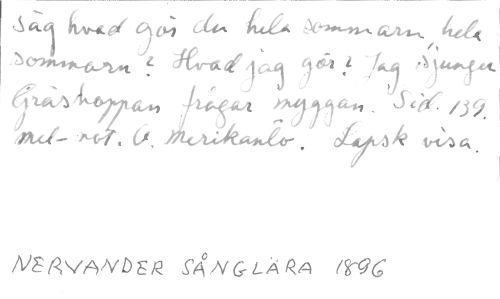 Säg hvad gör du hela sommarn, hela
sommarn? Hvad jag gör? Jag sjunger
Gräshoppan frågar myggan. Sid. 139.
mel-not. O. Merikanto. Lapsk visa.
NERVANDER SÅNGLÄRA 1896